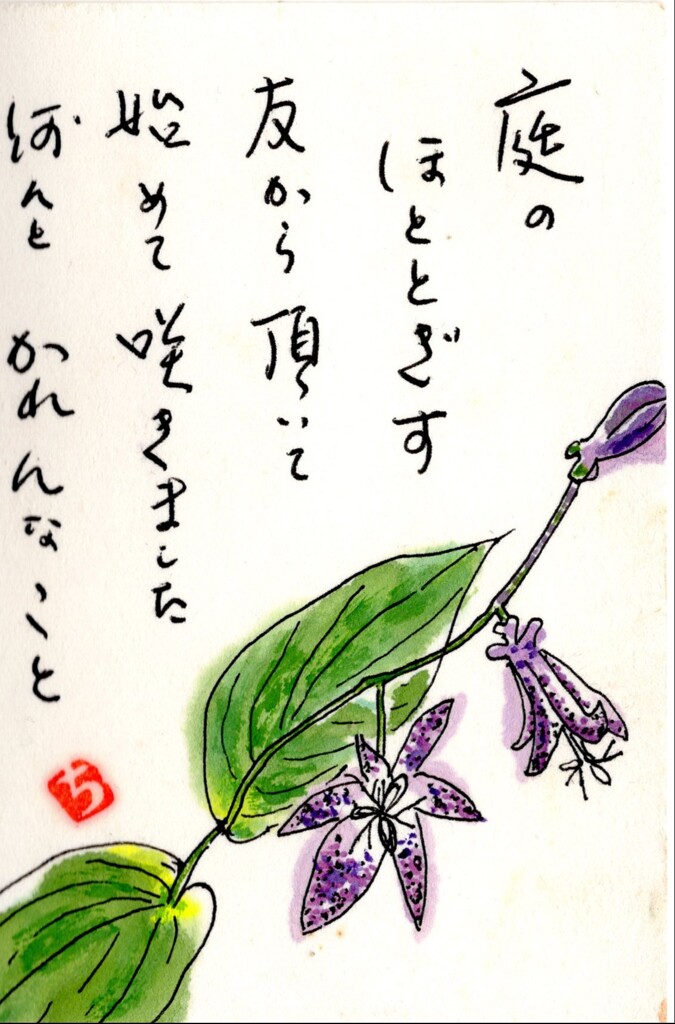 庭の
ほととぎす
友から頂いて
始めて咲きました
何んと かれんなこと
ち